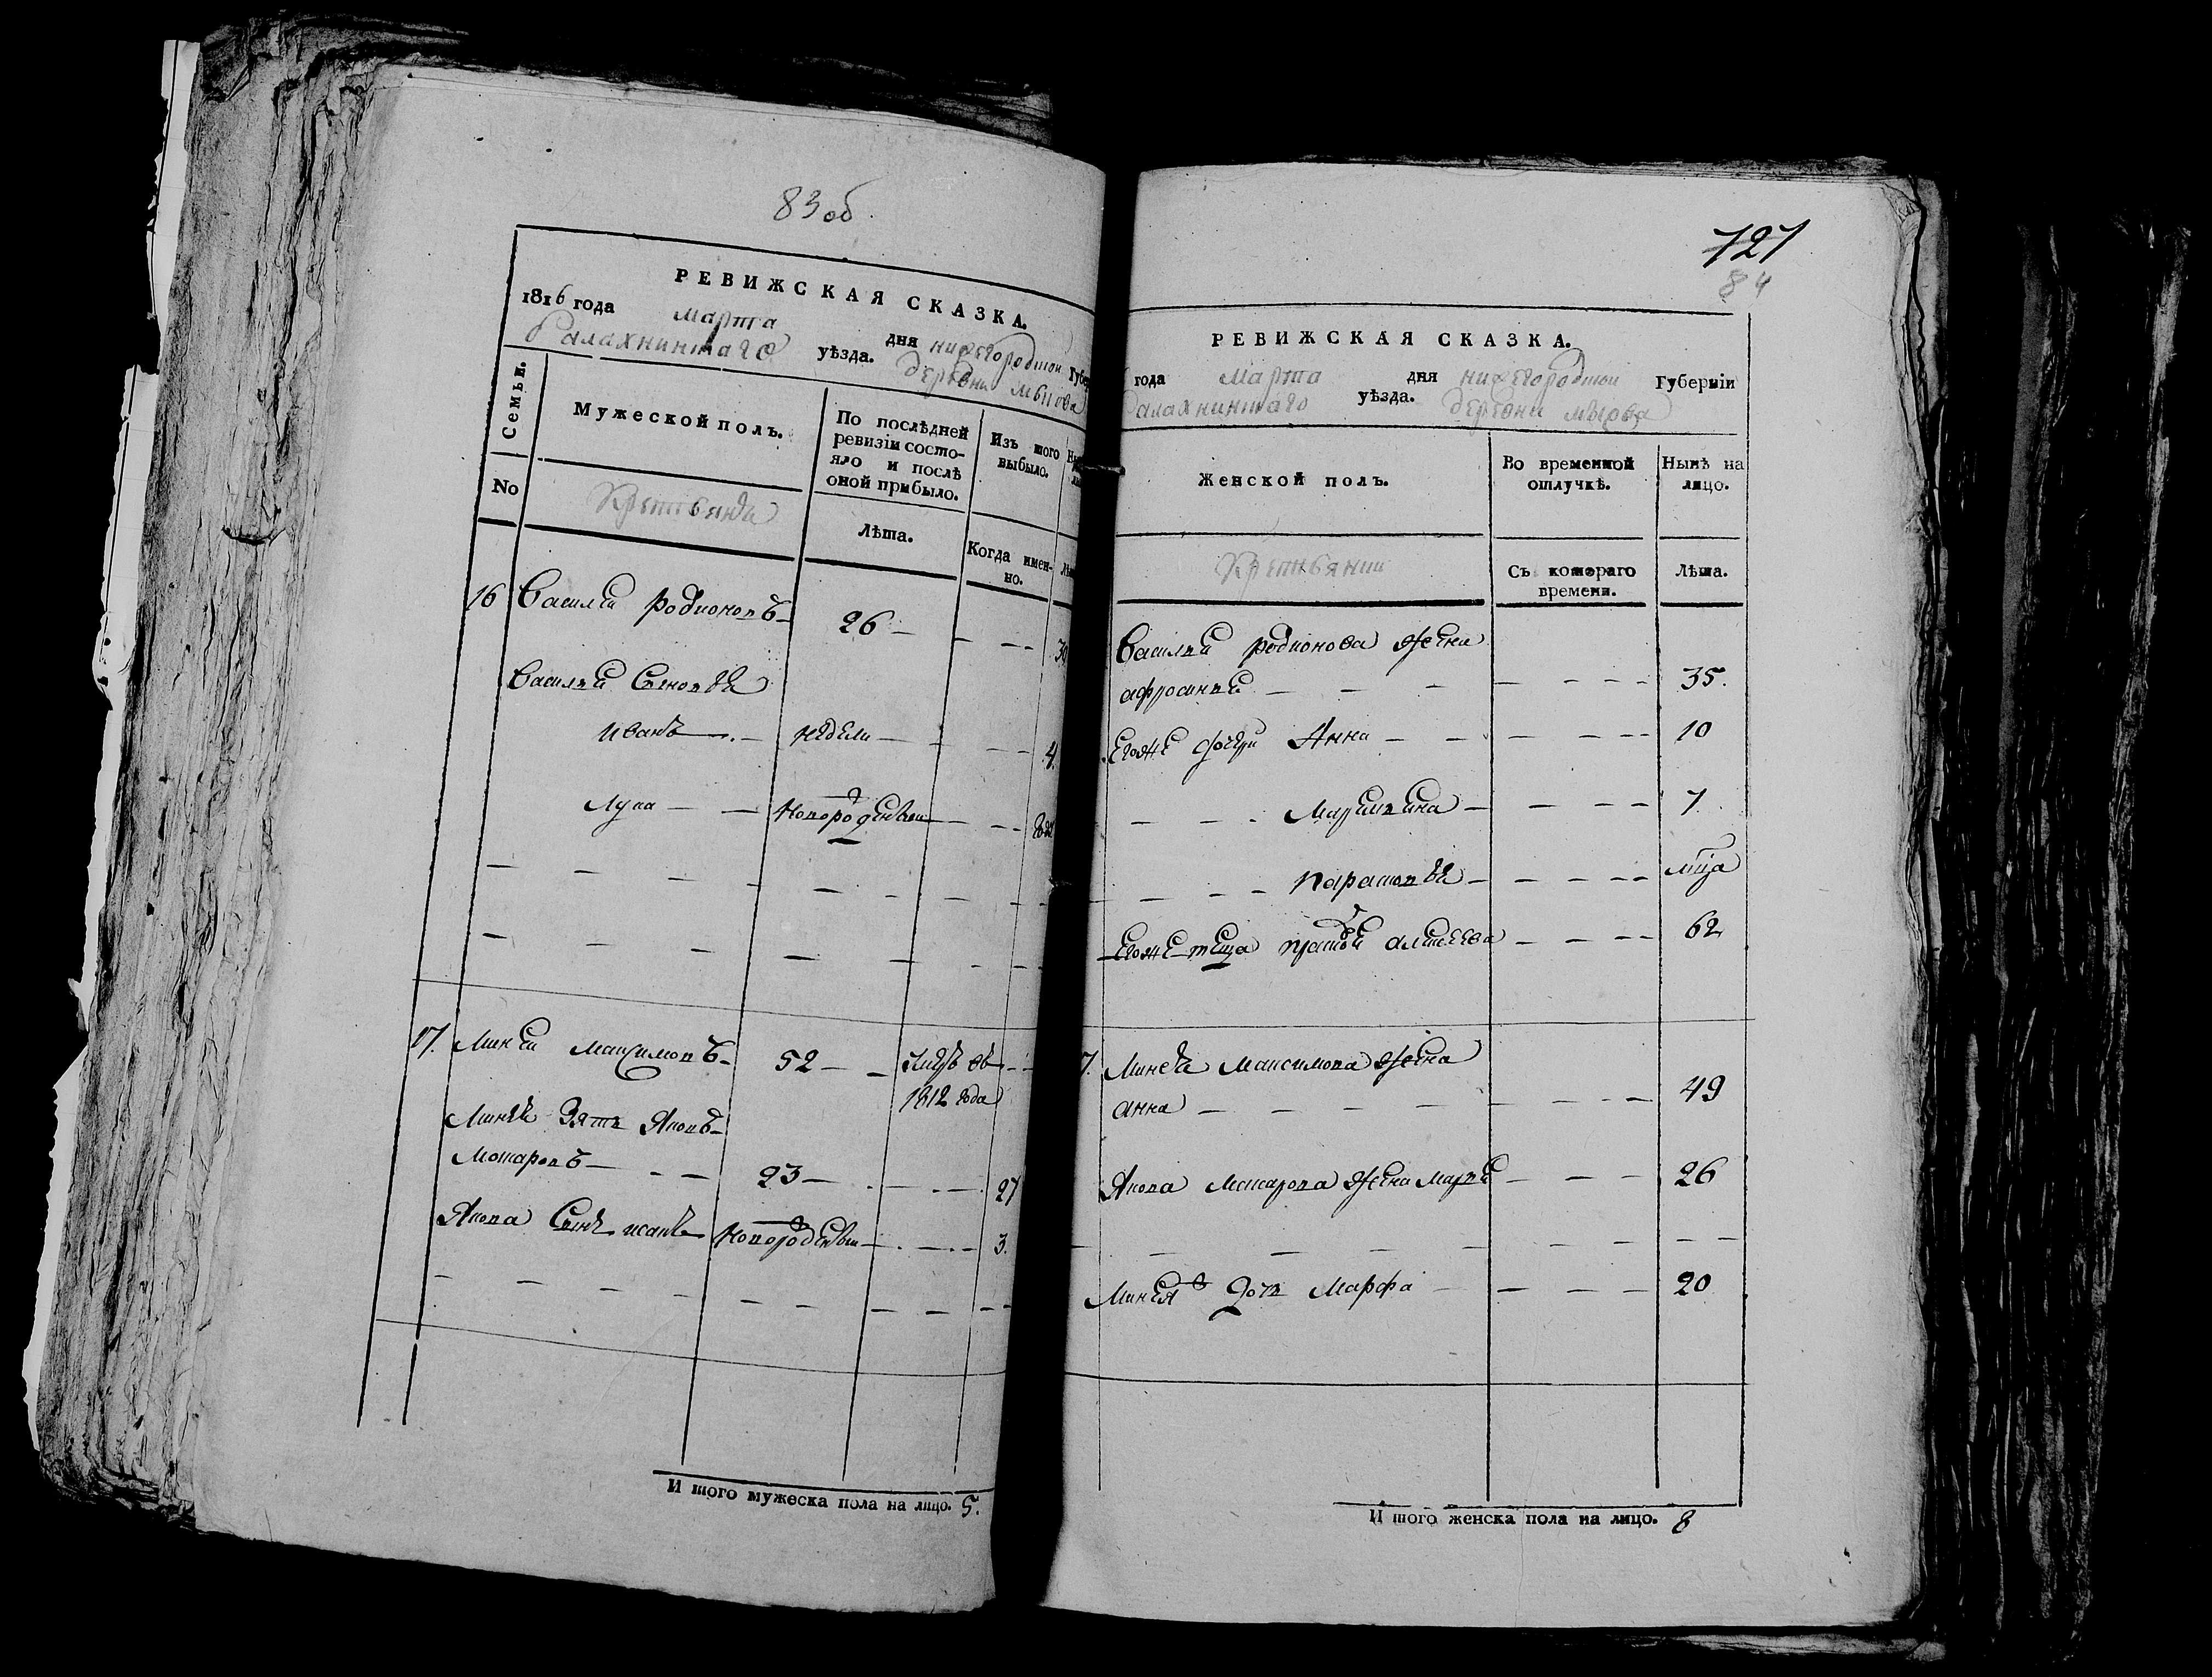 83 об.
РЕВИЖСКАЯ СКАЗКА.
1816 года марта дня нижегородской Губер
балахнинскаго уѣзда. деревни
Семьи.
Мужеской полъ.
По послѣдней ревизіи состояло и послѣ оной прибыло.
Изъ того выбыло.
No
Крестьяня
Лѣта.
Когда именно.
16 Василей родионовъ 26 30
Василья Сыновья
иванъ недели 4.
Лука новорожденны
17. Миней максимовъ 52 умеръ въ
1812 года
Минея Зять Яковъ
Макаровъ 23 27
Якова Сынъ исакъ новорожденны 3.
И того мужеска пола на лицо. 5.
727
84
РЕВИЖСКАЯ СКАЗКА.
года марта дня нижегородской Губерніи
балахнинскаго уѣзда. деревни
Женской полъ.
Во временной отлучкѣ.
Нынѣ на лицо.
Крестьянки
Съ котораго времени.
Лѣта.
Василья родионова жена
афросинья 35.
Егоже дочери Анна 10
Маремьяна 7
парасковья мца
Егоже теща алексеева 62
7. Минея Максимова жена
анна 49
Якова Макарова жена Марья 26
Минея дочь Марфа 20
И того женска пола на лицо. 8